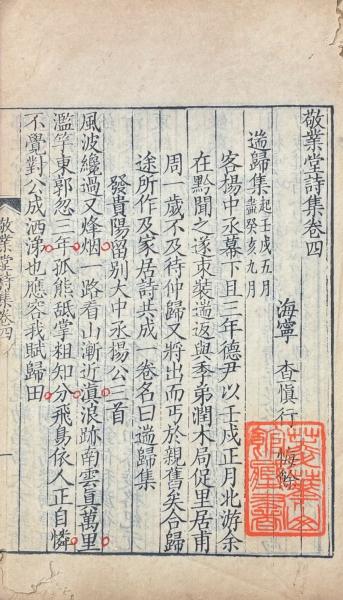 敬業堂詩集卷四
海寧 查慎行 悔餘
遄歸集起壬戌五月盡癸亥九月
客楊中丞幕下且三年德尹以壬戌正月北游余
在黔聞之遂束裝遄返與季弟潤木局促里居甫
周一歲不及待仲歸又將出而丐於親舊矣合歸
途所作及家居詩共成一卷名曰遄歸集
發貴陽留别大中丞楊公三首
風波纔過又烽烟一路看山漸近滇浪跡南雲真萬里
濫竽東郭忽三年孤熊舐掌粗知分飛鳥依人正自憐
不覺對公成洒涕也應容我賦歸田
敬業堂詩集卷四
一